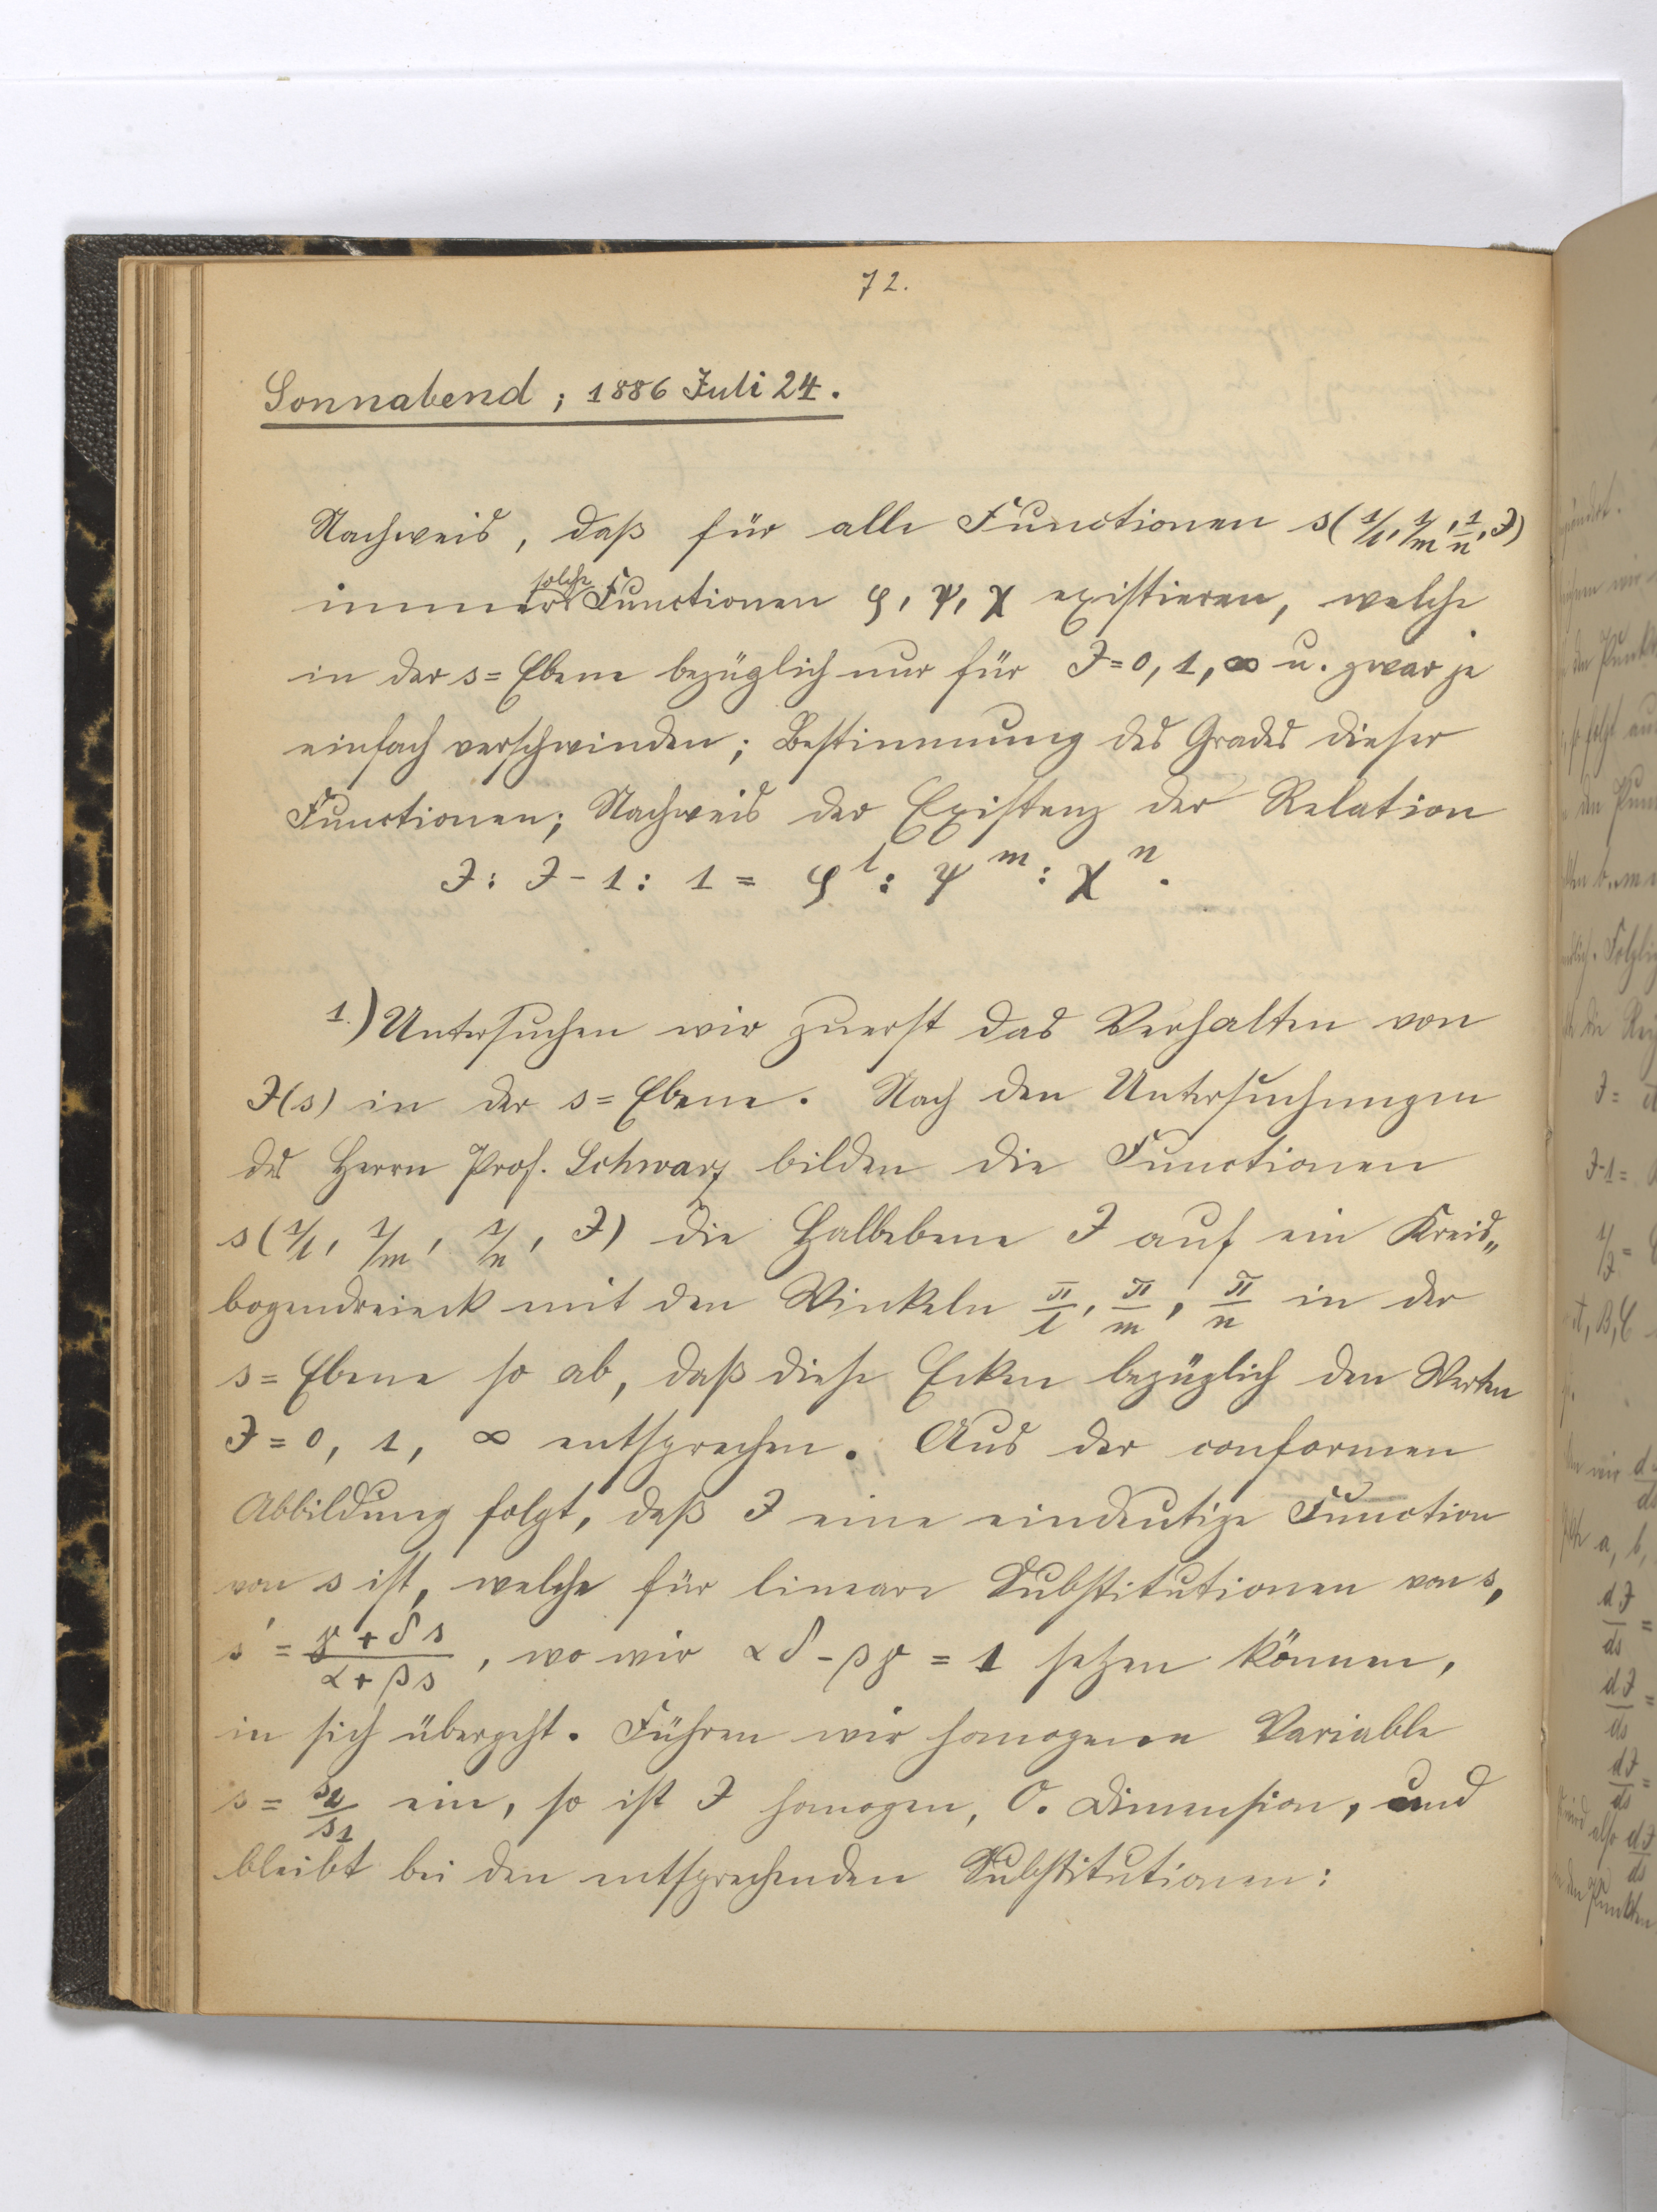 72.
Sonnabend; 1886 Juli 24.
Nachweis, daß für alle Functionen s(1/l, 1/m, 1/n, J)
solche
immer Functionen φ, ψ, χ existieren, welche
in der s=Ebene bezüglich nur für J=0, 1, ∞ u. zwar je
einfach verschwinden; Bestimmung des Grades dieser
Functionen; Nachweis der Existenz der Relation
J: J-1: 1 = φ^l : ψ^m : χ^n.
1.) Untersuchen wir zuerst das Verhalten von
J(s) in der s=Ebene. Nach den Untersuchungen
des Herrn Prof. Schwarz bilden die Functionen
s(1/l, 1/m, 1/n, J) die Halbebene J auf ein Kreis„
bogendreieck mit den Winkeln π/l, π/m, π/n in der
s=Ebene so ab, daß diese Ecken bezüglich den Werten
J=0, 1, ∞ entsprechen. Aus der conformen
Abbildung folgt, daß J eine eindeutige Function
von s ist, welche für lineare Substitutionen von s,
s' = (γ+δs)/(α+βs), wo wir αδ-βγ = 1 setzen können,
in sich übergeht. Führen wir homogene Variable
s = s₂/s₁ ein, so ist J homogen, 0. Dimension, und
bleibt bei den entsprechenden Substitutionen: